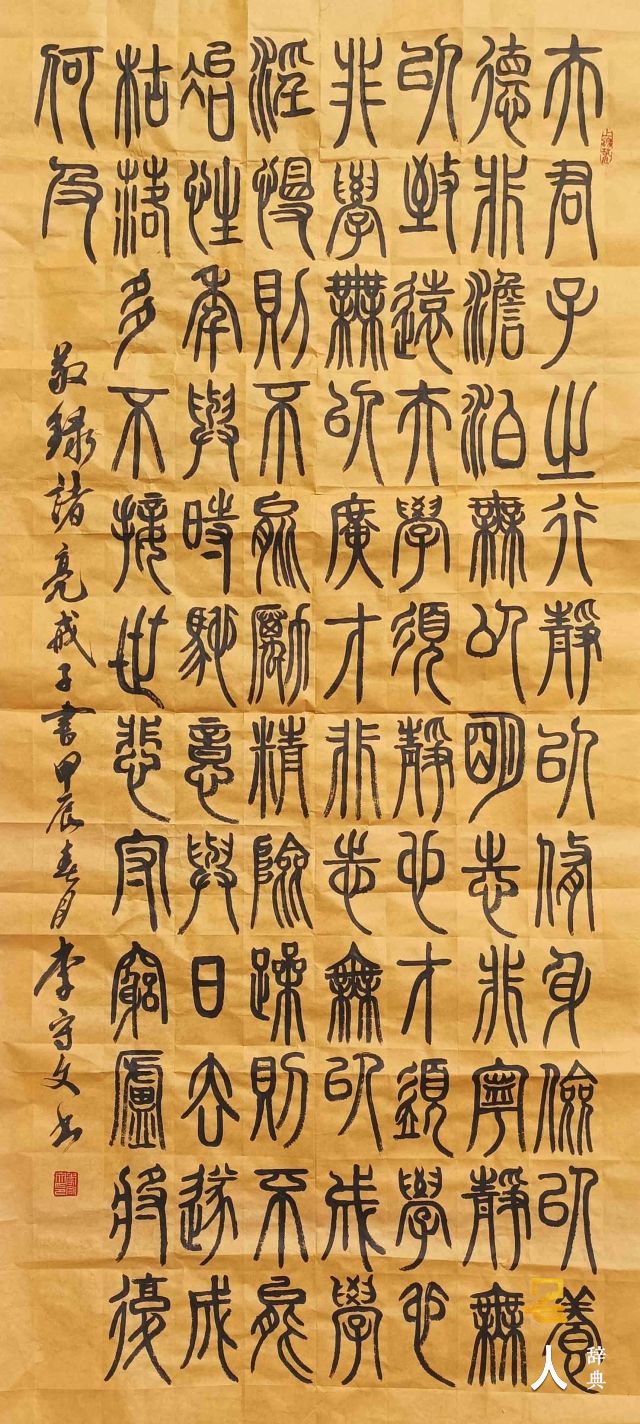 夫君子之行靜以修身儉以養
德非澹泊無以明志非寧靜無
以致遠夫學須靜也才須學也
非學無以廣才非志無以成學
淫慢則不能勵精險躁則不能
治性年與時馳意與日去遂成
枯落多不接世悲守窮廬將復
何及
敬録諸亮戒子書甲辰春月李守文书
名人辞典